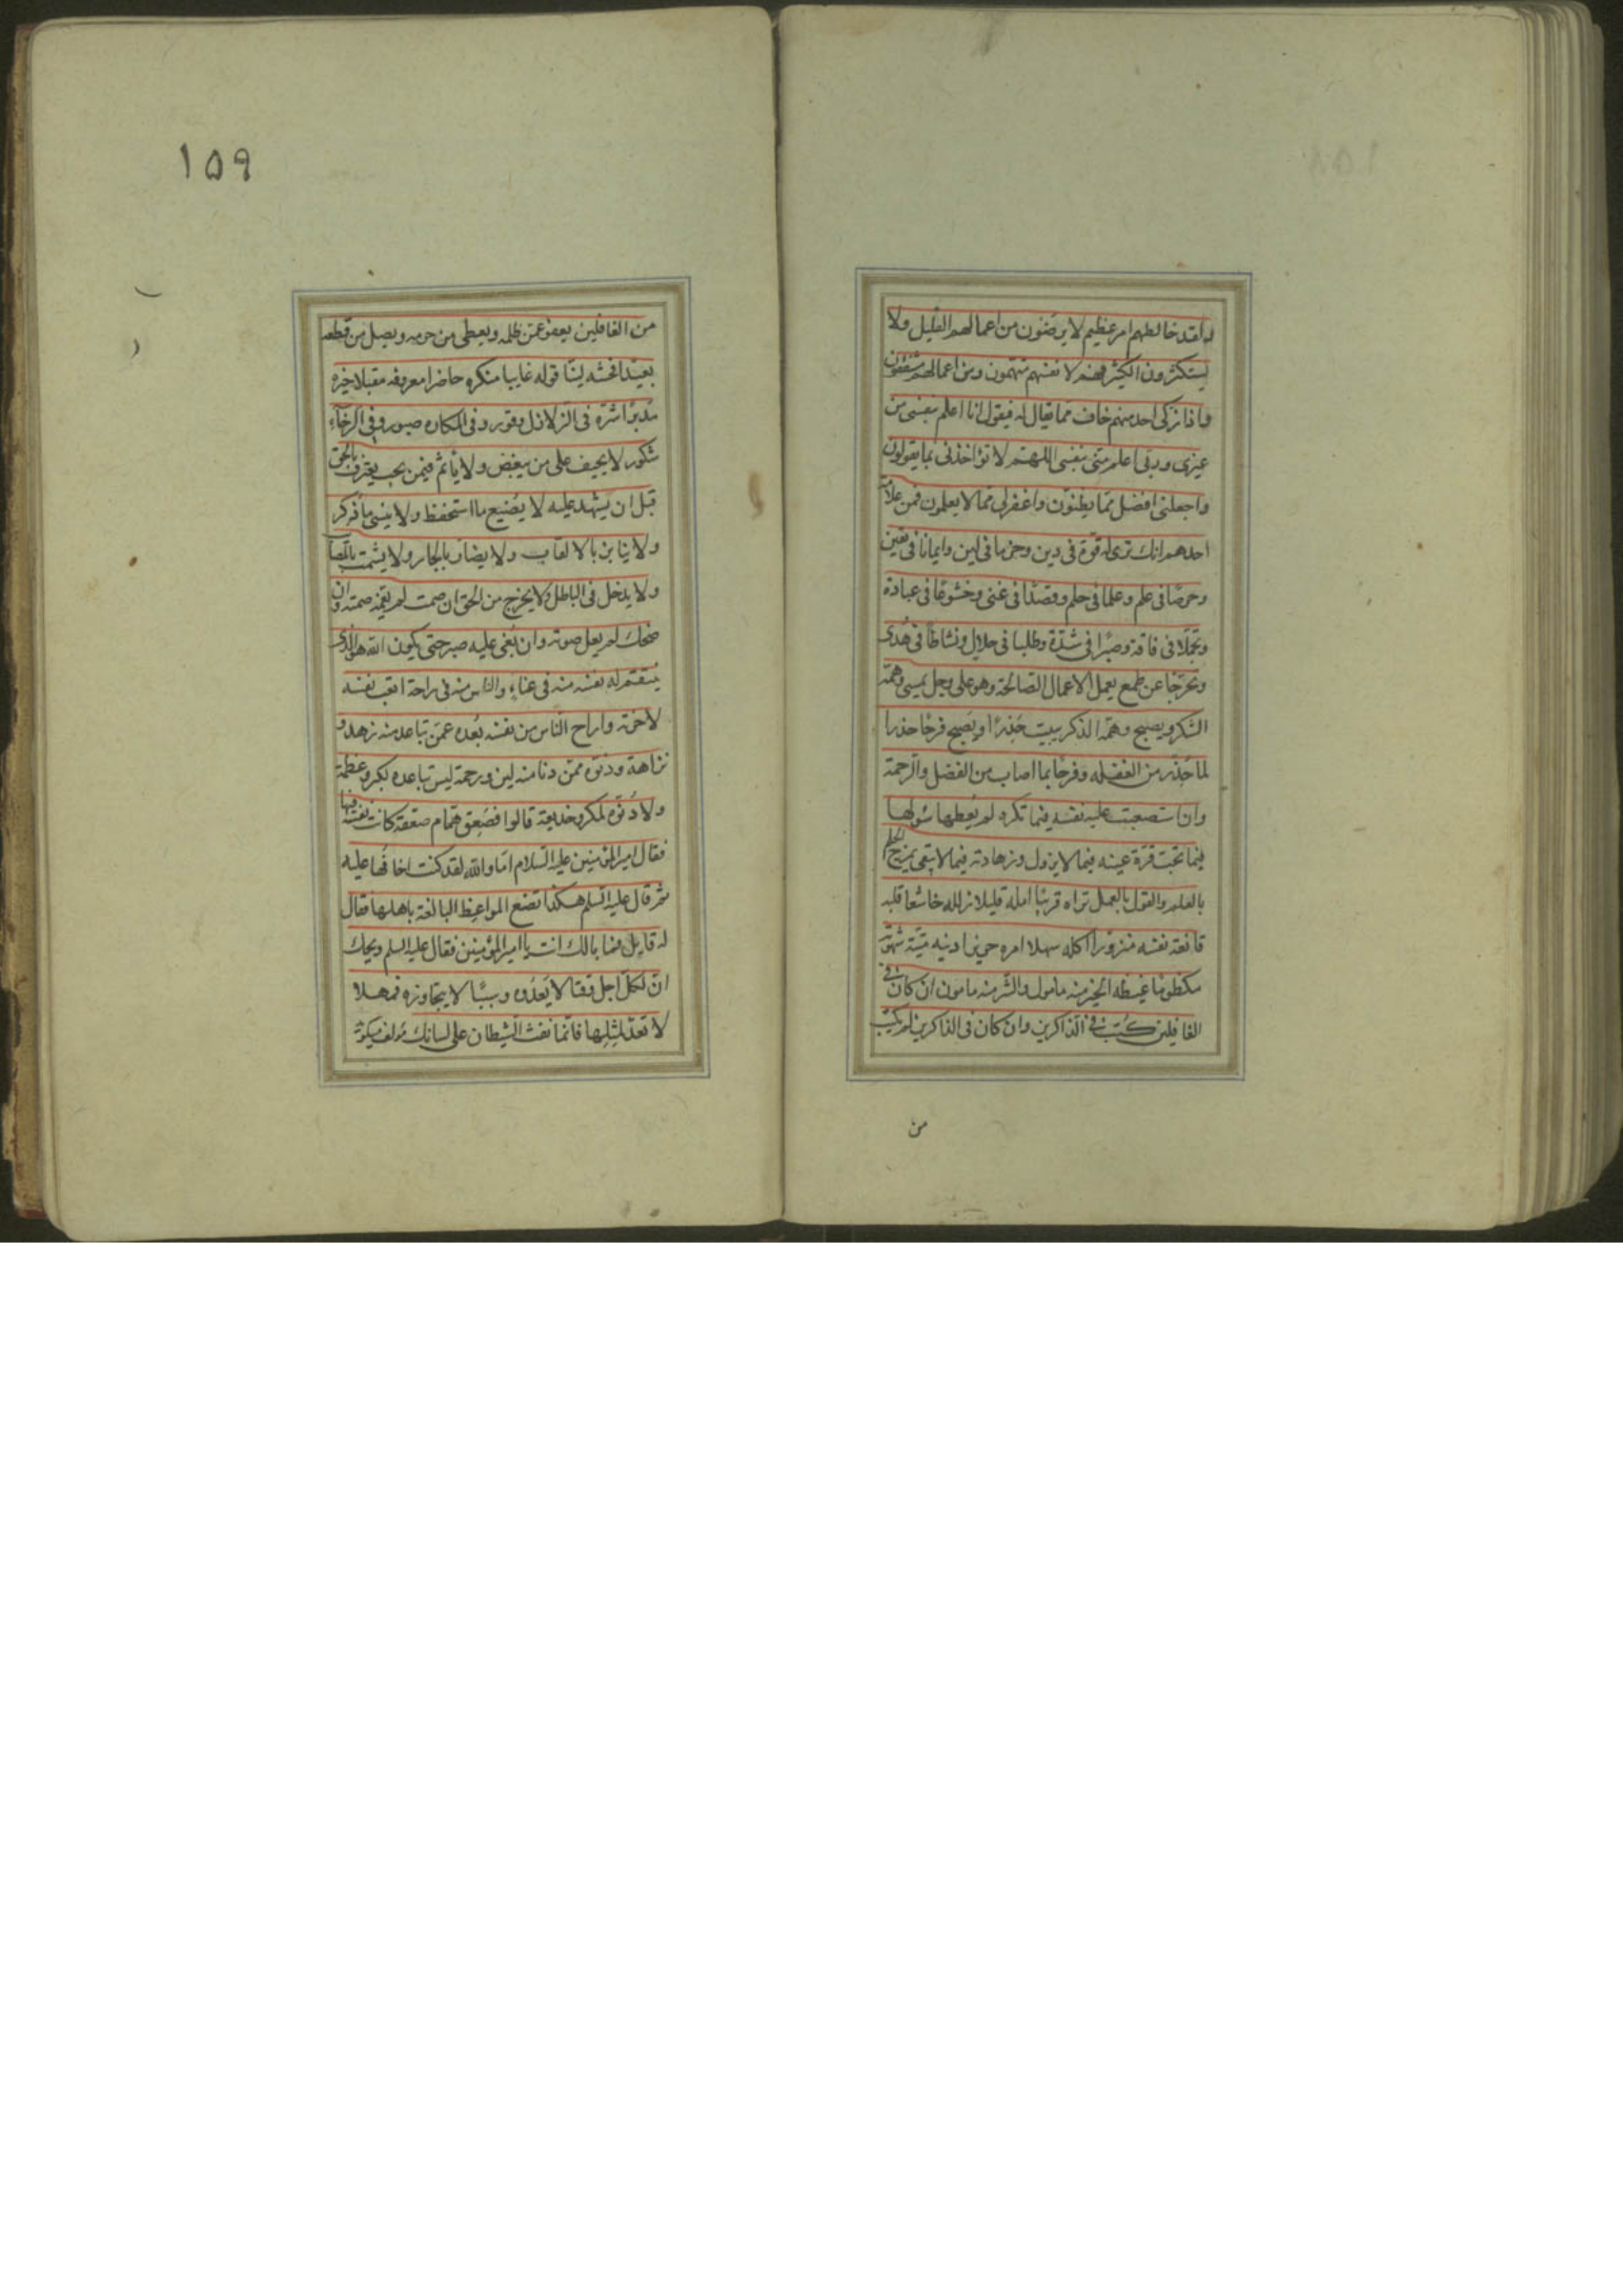 لهم لقد خالطهم امر عظيم لا يرضون من اعمالهم القليل ولا
يستكثرون الكثير فهم لانفسهم متهمون ومن اعمالهم مشفقون
واذا زكى احد منهم خاف مما يقال له فيقول انا اعلم بنفسى من
غيرى وربى اعلم منى بنفسى اللهم لا تؤاخذنى بما يقولون
واجعلنى افضل مما يظنون واغفرلى مما لا يعلمون فمن علامة
احدهم انك ترى له قوة فى دين وحزما فى لين وايمانا فى يقين
وحرصا فى علم وعلما فى حلم وقصدا فى غنى وخشوعا فى عبادة
وتجملا فى فاقة وصبرا فى شدة وطلبا فى حلال ونشاطا فى هدى
وتحرجا عن طمع يعمل الاعمال الصالحة وهو على وجل يمسى وهمه
الشكر ويصبح وهمه الذكر يبيت حذرا ويصبح فرحا حذرا
لما حذر من الغفله وفرحا بما اصاب من الفضل والرحمة
وان استصعبت عليه نفسه فيما تكره لم يعطها سؤلها
فيما تحب قرة عينه فيما لا يزول وزهادته فيما لا يبقى يمزج الحلم
بالعلم والقول بالعمل تراه قريبا امله قليلا زلله خاشعا قلبه
قانعة نفسه منزورا اكله سهلا امره حريزا دينه ميتة شهوته
مكظوما غيظه الخير منه مامول والشر منه مامون ان كان فى
الغافلين كتب فى الذاكرين وان كان فى الذاكرين لم يكتب
من
١٥٩
من الغافلين يعفو عمن ظلمه ويعطى من حرمه ويصل من قطعه
بعيدا فحشه لينا قوله غايبا منكره حاضرا معروفه مقبلا خيره
مدبرا شره فى الزلازل وقور وفى المكاره صبور وفى الرخاء
شكور لا يحيف على من يبغض ولا يأثم فيمن يحب يعترف بالحق
قبل ان يشهد عليه لا يضيع ما استحفظ ولا ينسى ما ذكر
ولا ينابز بالالقاب ولا يضار بالجار ولا يشمت بالمصائب
ولا يدخل فى الباطل ولا يخرج من الحق ان صمت لم يغمه صمته وان
ضحك لم يعل صوته وان بغى عليه صبر حتى يكون الله هو الذى
ينتقم له نفسه منه فى عناء والناس منه فى راحة اتعب نفسه
لاخرته واراح الناس من نفسه بعده عمن تباعد منه زهد و
نزاهة ودنوه ممن دنا منه لين ورحمة ليس تباعده بكبر وعظمة
ولا دنوه لمكر وخديعة قالوا فصعق همام صعقة كانت نفسه فيها
فقال امير المؤمنين عليه السلام اما والله لقد كنت اخافها عليه
ثم قال عليه السلم هكذا تصنع المواعظ البالغة باهلها فقال
له قايل فما بالك انت يا امير المؤمنين فقال عليه السلم ويحك
ان لكل اجل وقتا لا يعدوه وسببا لا يتجاوزه فمهلا
لا تعد لمثلها فانما نفث الشيطان على لسانك